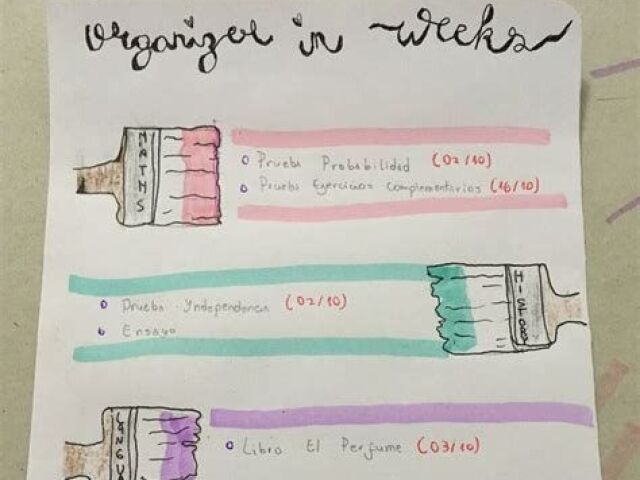 organizer in weeks
MATHS
Prueba Probabilidad (02/10)
Prueba Ejercicios Complementarios (16/10)
Prueba Yndependencia (02/10)
Ensayo
Libro El Perfume (03/10)